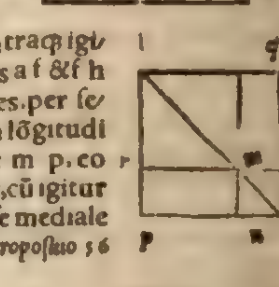 traqꝫ igi/
s a f & f h
es. per se/
lōgitudi
m p. eo
, cū igitur
e mediale
ropositio 5 6
l q
r m
p n